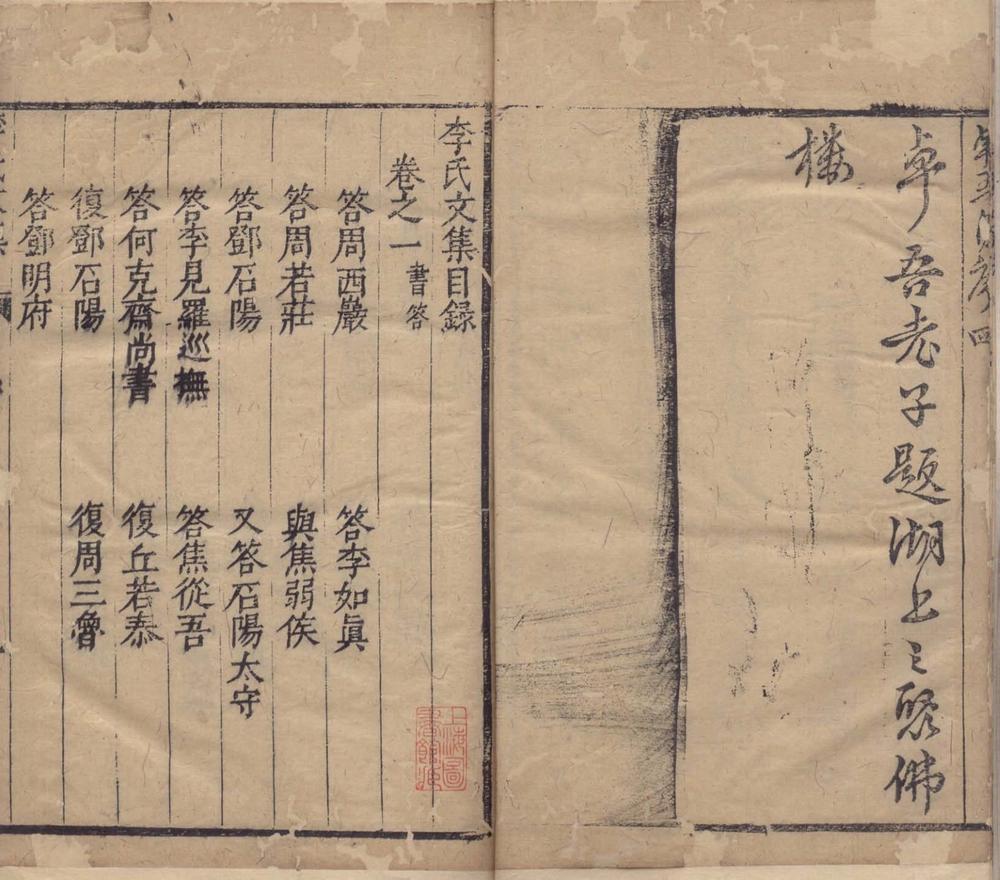 卓吾老子題湖上之聚佛
樓
李氏文集目録
卷之一 書答
答周西巖 答李如眞
答周若莊 與焦弱侯
答鄧石陽 又答石陽太守
答李見羅巡撫 答焦從吾
答何克齋尚書 復丘若泰
復鄧石陽 復周三魯
答鄧明府
上海圖書館藏